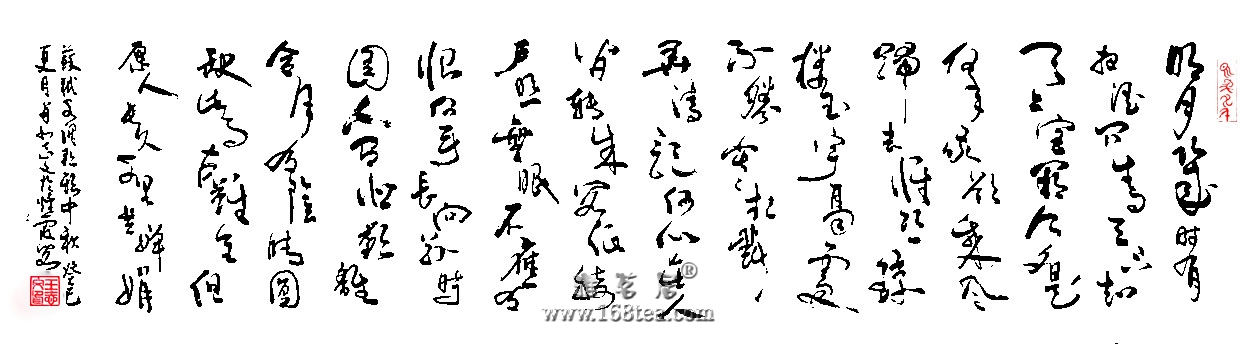 明月几時有
把酒问青天不知
天上宫阙今夕是
何年我欲乘风
歸去惟恐琼
楼玉宇高处
不勝寒起舞
弄清影何似在人
间转朱阁低绮
户照無眠不應有
恨何事長向别時
圆人有悲歡離
合月有陰晴圆
缺此事古難全但
愿人长久千里共嬋娟
蘇軾水调歌头中秋癸巳
夏月
茗居®
www.168tea.com